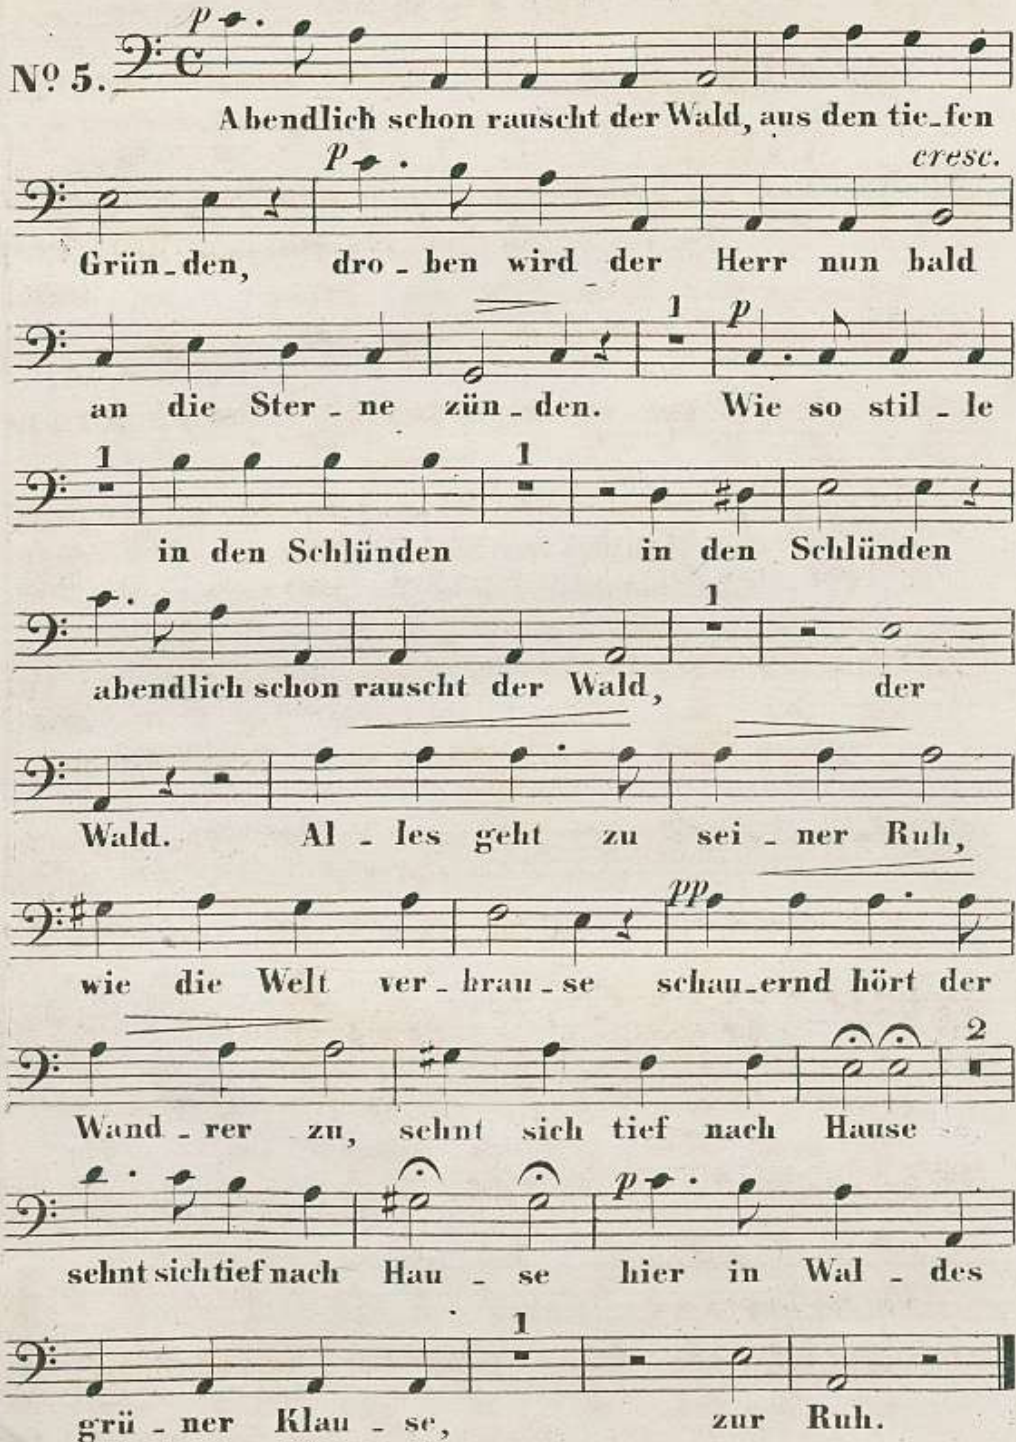 p
Nº 5.
Abendlich schon rauscht der Wald, aus den tie-fen
p cresc.
Grün-den, dro-ben wird der Herr nun bald
1 p
an die Ster-ne zün-den. Wie so stil-le
1 1
in den Schlünden in den Schlünden
1
abendlich schon rauscht der Wald, der
Wald. Al-les geht zu sei-ner Ruh,
pp
wie die Welt ver-brau-se schau-ernd hört der
2
Wand-rer zu, sehnt sich tief nach Hause
p
sehnt sich tief nach Hau-se hier in Wal-des
1
grü-ner Klau-se, zur Ruh.